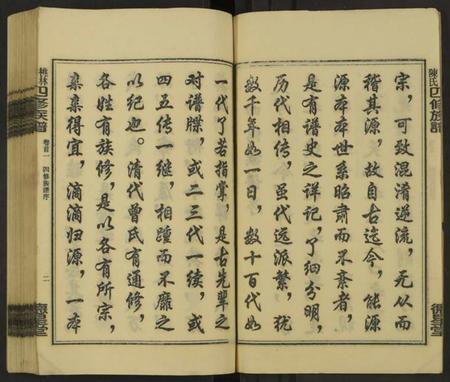 陳氏四修族譜
宗，可致混淆逆流，无从而
稽其源，故自古迄今，能源
源本本世系昭肃而不紊者，
是有谱史之详记，了细分明，
历代相传，虽代远派繁，犹
数千年如一日，数十百代如
德星堂
一代了若指掌，是古先辈之
对谱牒，或二三代一续，或
四五传一继，相踵而不靡之
以纪迹。清代曾氏有通修，
各姓有族修，是以各有所宗，
亲亲得宜，滴滴归源，一本
桃林四修族譜
卷首一
四修族譜序
二
德星堂